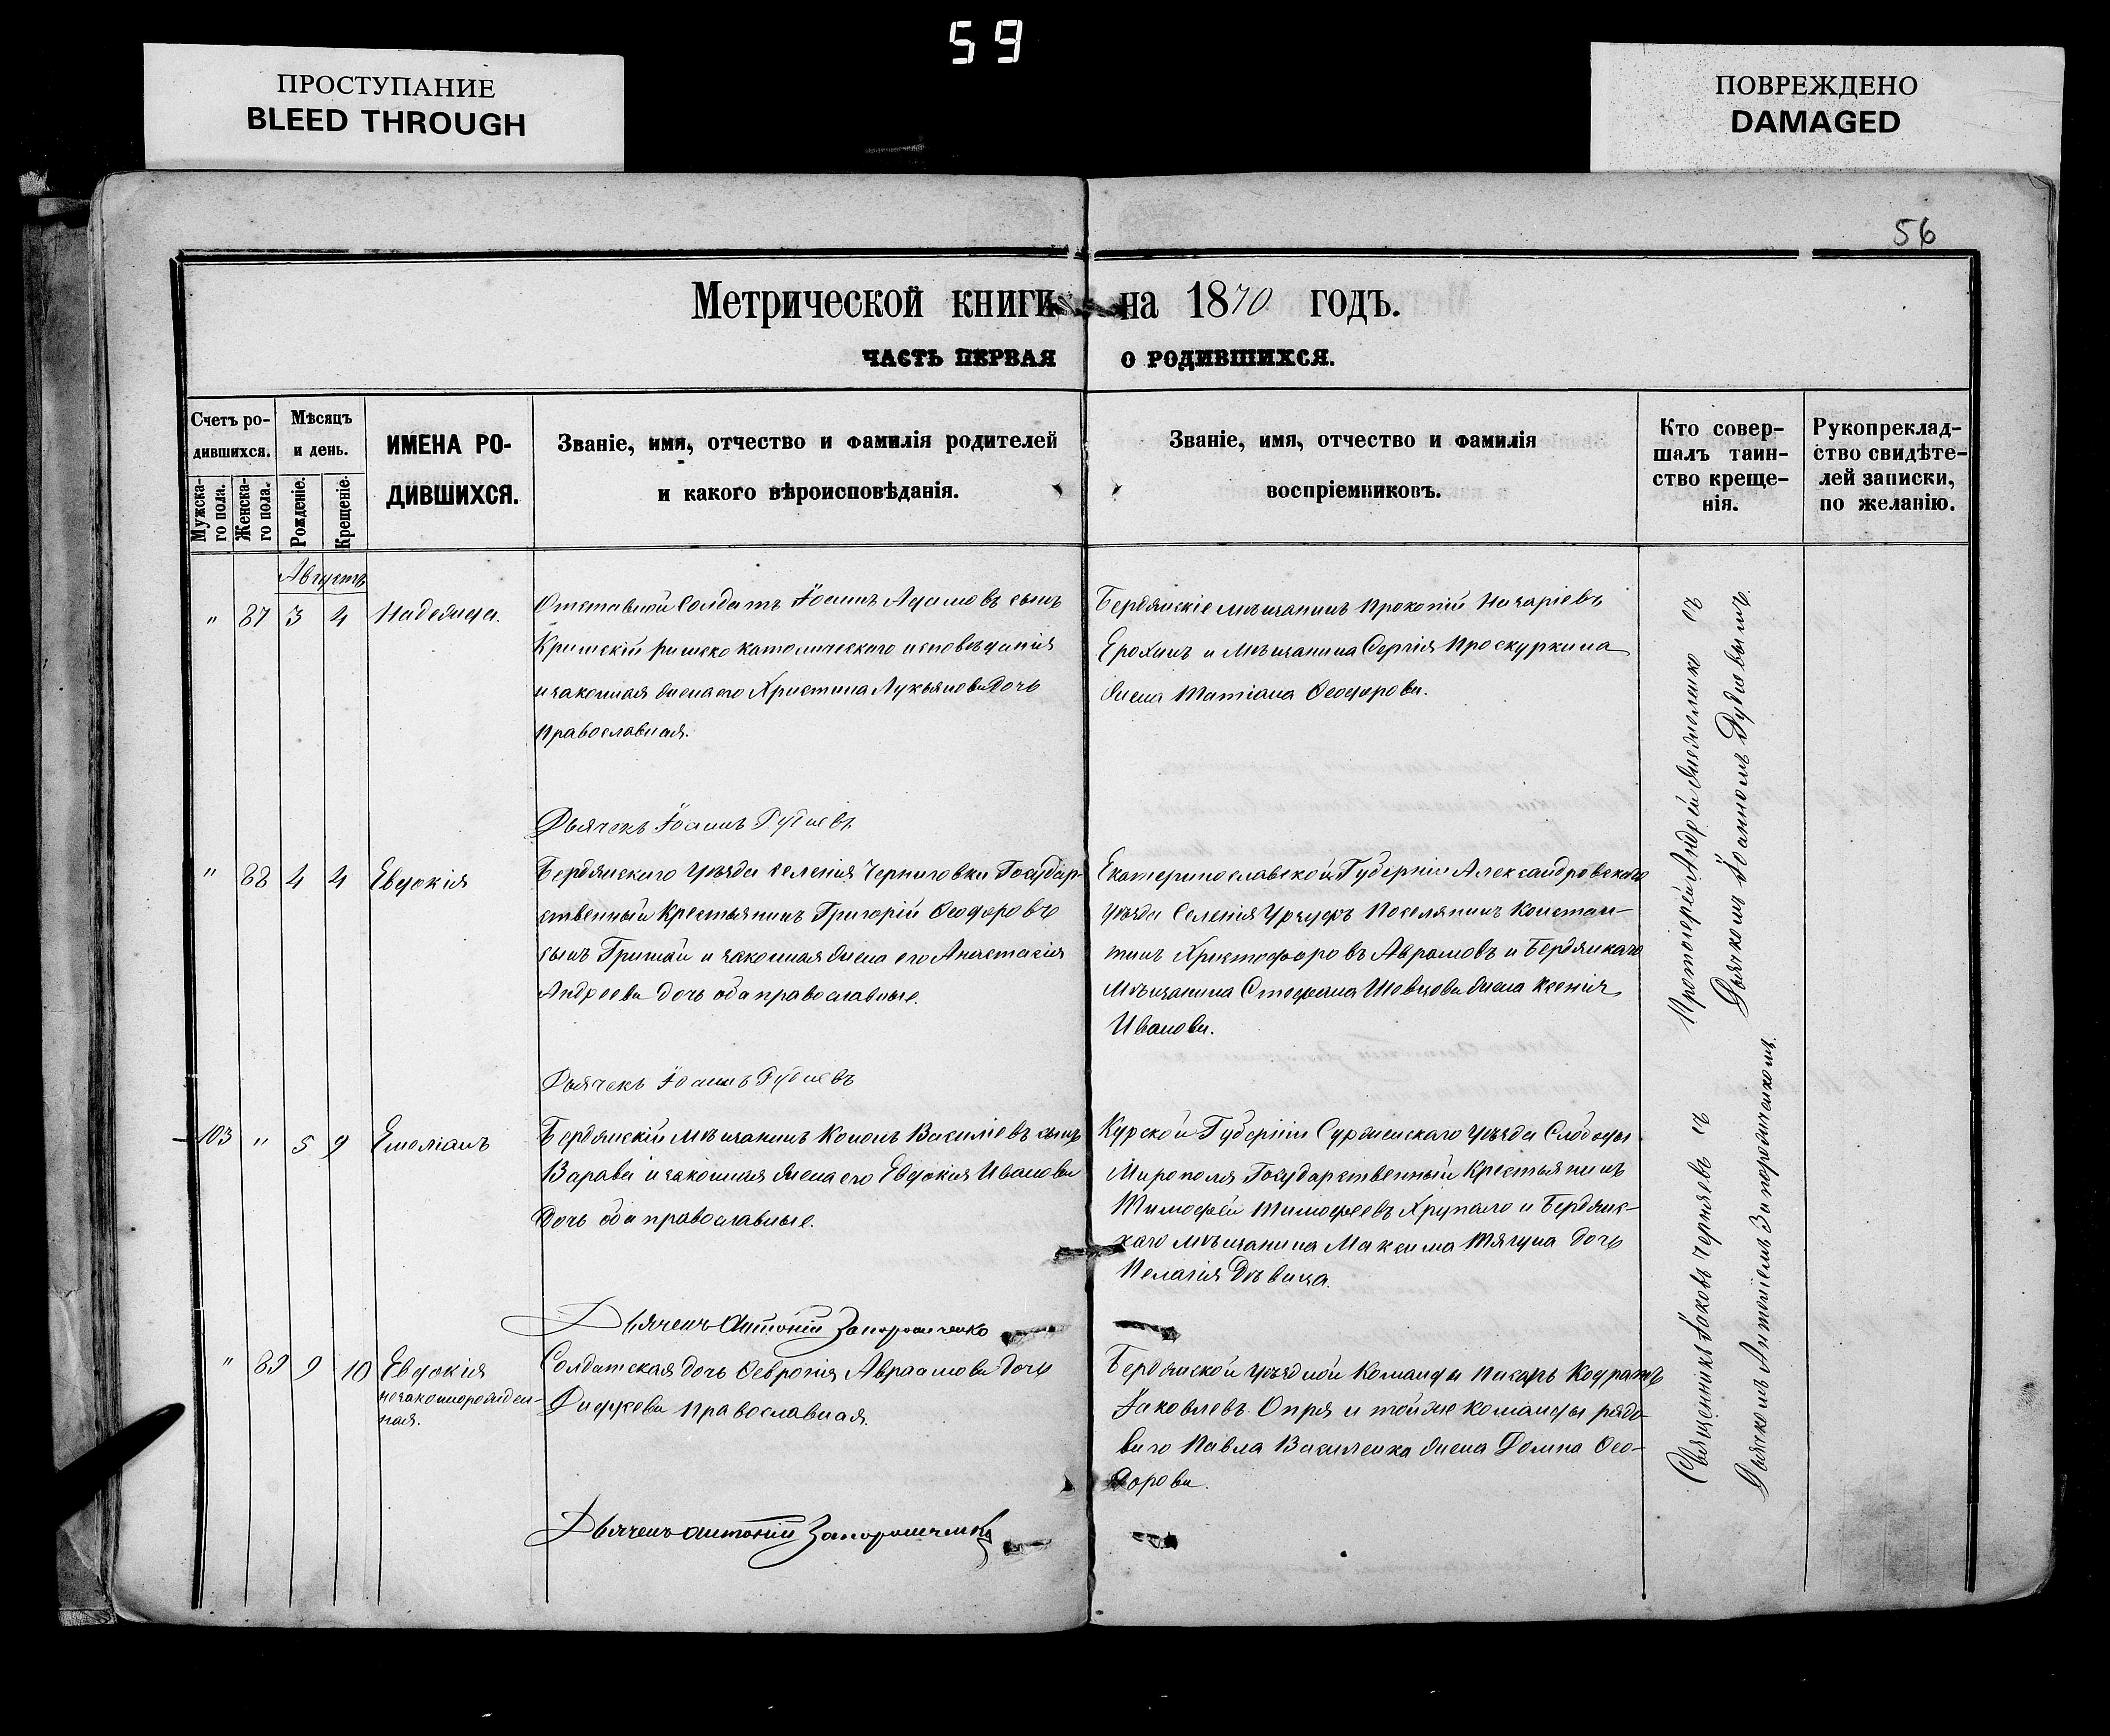 59
ПРОСТУПАНИЕ
BLEED THROUGH
ПОВРЕЖДЕНО
DAMAGED
56
Метрической книги на 1870 годъ.
ЧАСТЬ ПЕРВАЯ О РОДИВШИХСЯ.
Счетъ ро-
дившихся.
Мужска-
го пола.
Женска-
го пола.
Мѣсяцъ
и день.
Рожденіе.
Крещеніе.
ИМЕНА РО-
ДИВШИХСЯ.
Званіе, имя, отчество и фамилія родителей
и какого вѣроисповѣданія.
Званіе, имя, отчество и фамилія
воспріемниковъ.
Кто совер-
шалъ таин-
ство креще-
нія.
Рукопреклад-
ство свидѣте-
лей записки,
по желанію.
Августъ
" 87 3 4 Надежда.
Отставной Солдатъ Іоаннъ Адамовъ сынъ
Кримскій римско католическаго исповѣданія
и законная жена его Христина Лукьянова Дочь
Православная.
Бердянскіе мѣщанинъ Прокопій Назаріевъ
Ерохинъ и Мѣщанина Сергія Проскуркина
жена Татіана Ѳеодорова.
Дьячекъ Іоаннъ Рудневъ
" 88 4 4 Евдокія
Бердянскаго уѣзда селенія Черниговки Государ-
ственный Крестьянинъ Григорій Ѳеодоровъ
сынъ и законная жена его Анастасія
Андреева дочь оба православные.
Екатеринославской Губерніи Александровскаго
уѣзда Селенія Урзуфъ Поселянинъ Констан-
тинъ Христофоровъ Аврамовъ и Бердянскаго
Мѣщанина Стефана Шевцова жена Ксенія
Иванова.
Дьячекъ Іоаннъ Рудневъ
103 " 5 9 Емеліанъ
Бердянскій Мѣщанинъ Кононъ Василіевъ сынъ
Варава и законная жена его Евдокія Иванова
Дочь оба православные.
Курской Губерніи Суджанскаго уѣзда Слободы
Мирополя Государственный Крестьянинъ
Тимофей Тимофеевъ Хрупало и Бердянс-
каго мѣщанина Максима Тягуна дочь
Пелагія Дѣвица.
Дьячекъ Антоній Запорожченко
" 89 9 10 Евдокія
незаконнорожден-
ная.
Солдатская дочь Ѳевронія Авраамова Дочь
православная.
Бердянской уѣздной Команды писарь Кодратъ
Іаковлевъ Опря и тойже команды рядо-
ваго Павла Василенка жена Домна Ѳео-
дорова.
Дьячекъ Антоній Запорожченко
Протоіерей Андрей съ
Дьячкомъ Іоанномъ Рудневымъ.
Священникъ Іаковъ Черняевъ съ
Дьячкомъ Антоніемъ Запорожченкомъ.